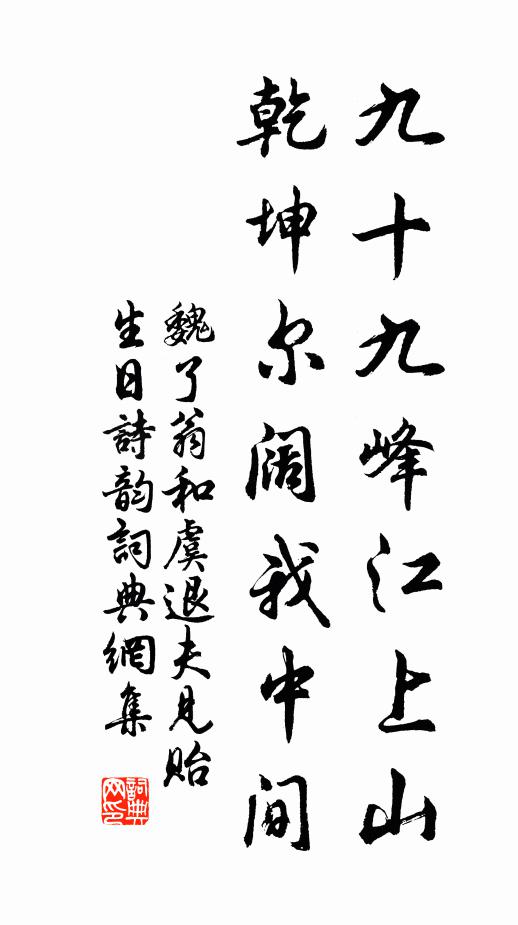 九十九峰江上山
乾坤尔阔我中间
魏了翁和虞退夫见贻
生日詩韵詞典網集
詞典
网印